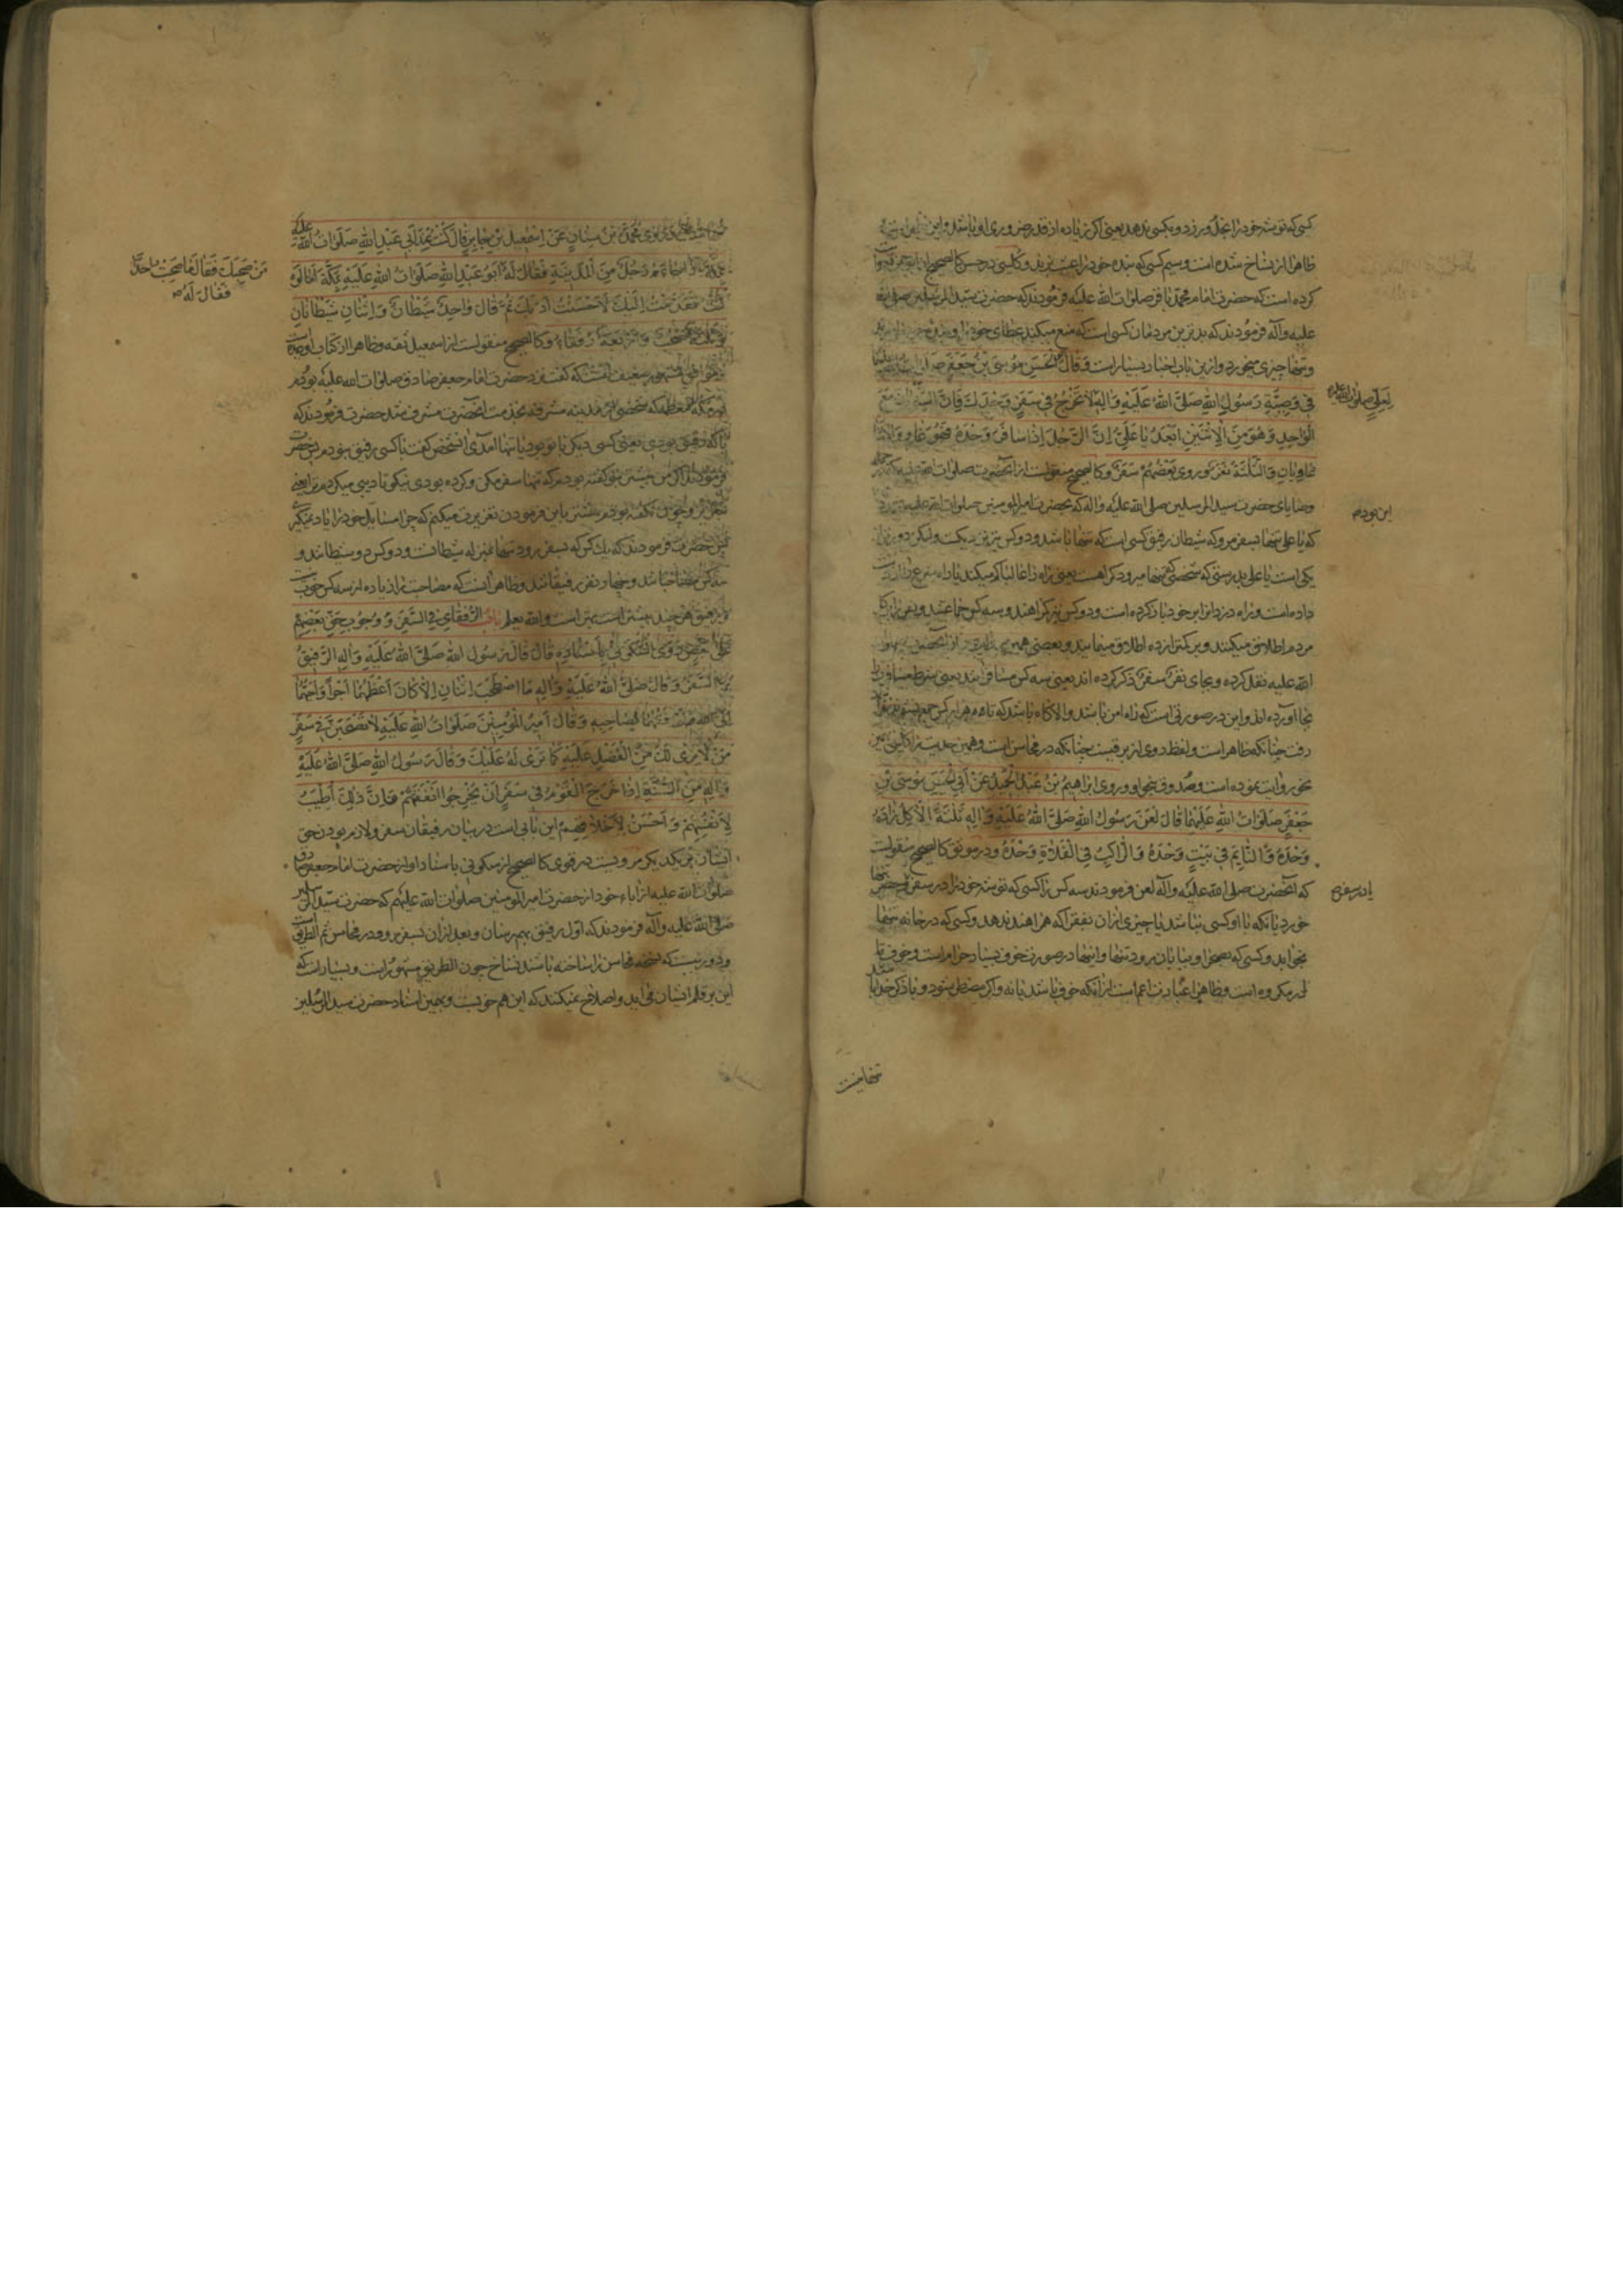 کسی که توشه خود را بخل ورزد و بکسی ندهد یعنی اگر زیاده از قدر ضروری او باشد و این
ظاهرا از نساخ شده است و سیم کسی که بنده خود را عبث بزند و کلینی در حسن کالصحیح
کرده است که حضرت امام محمد باقر صلوات الله علیه فرمودند که حضرت سید المرسلین صلی الله
علیه و آله فرمودند که بدترین مردمان کسی است که منع میکند عطای خود را و
و تنها چیزی میخورد و ازین باب اخبار بسیار است وَقَالَ اَبُو الْحَسَنِ مُوسَى بْنُ جَعْفَرٍ
فِي وَصِيَّةِ رَسُولِ اللهِ صَلَّى اللهُ عَلَيْهِ وَآلِهِ لَا تَخْرُجْ فِي سَفَرٍ وَحْدَكَ فَإِنَّ الشَّيْطَانَ مَعَ
لِعَلِيٍّ صلوات الله علیه
الْوَاحِدِ وَهُوَ مِنَ الْاِثْنَيْنِ اَبْعَدُ يَا عَلِيُّ اِنَّ الرَّجُلَ اِذَا سَافَرَ وَحْدَهُ فَهُوَ غَاوٍ وَالْاِثْنَانِ
غَاوِيَانِ وَالثَّلٰثَةُ نَفَرٌ وَرَوَى بَعْضُهُمْ سَفْرٌ و کالصحیح منقولست از آنحضرت صلوات الله علیه که
وصایای حضرت سید المرسلین صلی الله علیه و اله که بحضرت امیر المومنین صلوات الله علیه
این بود
که یا علی تنها بسفر مرو که شیطان رفیق کسی است که تنها باشد و دو کس
یکی است یا علی بدرستی که شخصی که تنها میرود گمراهست یعنی راه را غالبا گم میکند یا راه
داده است و راه دزدان بر خود باز کرده است و دو کس نیز گمراهند و سه کس جماعتند و نفر
مردم اطلاق میکنند و بر کمتر از ده اطلاق مینمایند و بعضی همین
الله علیه نقل کرده و بجای نفر سفر ذکر کرده اند یعنی سه کس مسافرانند یعنی شرط مسافرت
بجا آورده اند و این در صورتی است که راه امن باشد و الا گاه باشد که تا ده هزار کس جمع نشوند
رفت چنانکه ظاهر است و لفظ روی از برقیست چنانکه در محاسن است و همین حدیث را کلینی
نحو روایت نموده است و صدوق وَرَوَى اِبْرَاهِيمُ بْنُ عَبْدِ الْحَمِيدِ عَنْ اَبِي الْحَسَنِ مُوسَى بْنِ
جَعْفَرٍ صَلَوَاتُ اللهِ عَلَيْهِمَا قَالَ لَعَنَ رَسُولُ اللهِ صَلَّى اللهُ عَلَيْهِ وَآلِهِ ثَلٰثَةً الْآكِلَ زَادَهُ
وَحْدَهُ وَالنَّائِمَ فِي بَيْتٍ وَحْدَهُ وَالرَّاكِبَ فِي الْفَلَاةِ وَحْدَهُ و در موثق کالصحیح منقولست
که آنحضرت صلی الله علیه و آله لعن فرمودند سه کس را کسی که توشه خود را در سفر
یا در سفر
خورد یا آنکه با او کسی نباشد یا چیزی از آن بفقرا که همراهند ندهد و کسی که در خانه تنها
بخوابد و کسی که بصحرا و بیابان برود تنها و اینها در صورت خوف بسیار حرام است و خوف
مکروه است و ظاهرا عبارت اعم است از آنکه خوف باشد یا نه و اگر مضطر شود و با ذکر خدا باشد
تنها نیست
وَرَوَى مُحَمَّدُ بْنُ سِنَانٍ عَنْ اِسْمَعِيلَ بْنِ جَابِرٍ قَالَ كُنْتُ عِنْدَ اَبِي عَبْدِ اللهِ صَلَوَاتُ اللهِ عَلَيْهِ
رَجُلٌ مِنَ الْمَدِينَةِ فَقَالَ لَهُ اَبُو عَبْدِ اللهِ صَلَوَاتُ اللهِ عَلَيْهِ
مَنْ صَحِبَكَ فَقَالَ مَا صَحِبْتُ اَحَدًا
فَقَالَ لَهُ
تَقَدَّمْتُ اِلَيْكَ لَاَحْسَنْتُ اَدَبَكَ ثُمَّ قَالَ وَاحِدٌ شَيْطَانٌ وَاِثْنَانِ شَيْطَانَانِ
وَثَلٰثَةٌ صَحْبٌ وَاَرْبَعَةٌ رُفَقَاءُ و کالصحیح منقولست از اسمعیل ثقه و ظاهرا از کتاب او
گفت که در حضرت امام جعفر صادق صلوات الله علیه بودم
در مکه معظمه که شخصی از مدینه مشرفه بخدمت آنحضرت مشرف شد حضرت فرمودند که
با که رفیق بودی یعنی کسی دیگر با تو بود یا تنها آمدی آنشخص گفت با کسی رفیق نبودم پس حضرت
فرمودند اگر من پیشتر بتو گفته بودم که تنها سفر مکن و کرده بودی نیکو تادیبی میکردم ترا یعنی
تعزیر و چون نگفته بودم پیشتر باین فرمودن تعزیرت میکنم که چرا مسایل خود را یاد نمیگیری
پس حضرت فرمودند که یک کس که بسفر رود تنها بمنزله شیطانست و دو کس دو شیطانند و
سه کس مصاحبانند و چهار نفر رفیقانند و ظاهر آنست که مصاحبت را زیاده از سه کس خوبست
و رفیق هر چند بیشتر است بهتر است و الله یعلم بَابُ الرُّفَقَاءِ فِي السَّفَرِ وَوُجُوبِ حَقِّ بَعْضِهِمْ
عَلَى بَعْضٍ رَوَى السَّكُونِيُّ بِاِسْنَادِهِ قَالَ قَالَ رَسُولُ اللهِ صَلَّى اللهُ عَلَيْهِ وَآلِهِ الرَّفِيقُ
ثُمَّ السَّفَرُ وَقَالَ صَلَّى اللهُ عَلَيْهِ وَآلِهِ مَا اصْطَحَبَ اثْنَانِ اِلَّا كَانَ اَعْظَمُهُمَا اَجْرًا وَاَحَبُّهُمَا
اِلَى اللهِ اَرْفَقُهُمَا لِصَاحِبِهِ وَقَالَ اَمِيرُ الْمُؤْمِنِينَ صَلَوَاتُ اللهِ عَلَيْهِ لَا تَصْحَبَنَّ فِي سَفَرٍ
مَنْ لَا يَرَى لَكَ مِنَ الْفَضْلِ عَلَيْهِ كَمَا تَرَى لَهُ عَلَيْكَ وَقَالَ رَسُولُ اللهِ صَلَّى اللهُ عَلَيْهِ
وَآلِهِ مِنَ السُّنَّةِ اِذَا خَرَجَ الْقَوْمُ فِي سَفَرٍ اَنْ يُخْرِجُوا نَفَقَتَهُمْ فَاِنَّ ذٰلِكَ اَطْيَبُ
لِاَنْفُسِهِمْ وَاَحْسَنُ لِاَخْلَاقِهِمْ این بابی است در بیان رفیقان سفر و لازم بودن حق
ایشان بر یکدیگر مرویست در قوی کالصحیح از سکونی باسناد او از حضرت امام جعفر صادق
صلوات الله علیه از آباء خود از حضرت امیر المومنین صلوات الله علیهم که حضرت سید المرسلین
صلی الله علیه و آله فرمودند که اول رفیق بهم رسان و بعد از آن بسفر برو و در محاسن ثم الطریق
و دور نیست که نسخه محاسن را ساخته باشند نساخ چون الطریق مشهور است و بسیار است که
این بر قلم ایشان می آید و اصلاح نمیکنند که این هم خوبست و بهمین اسناد حضرت سید المرسلین